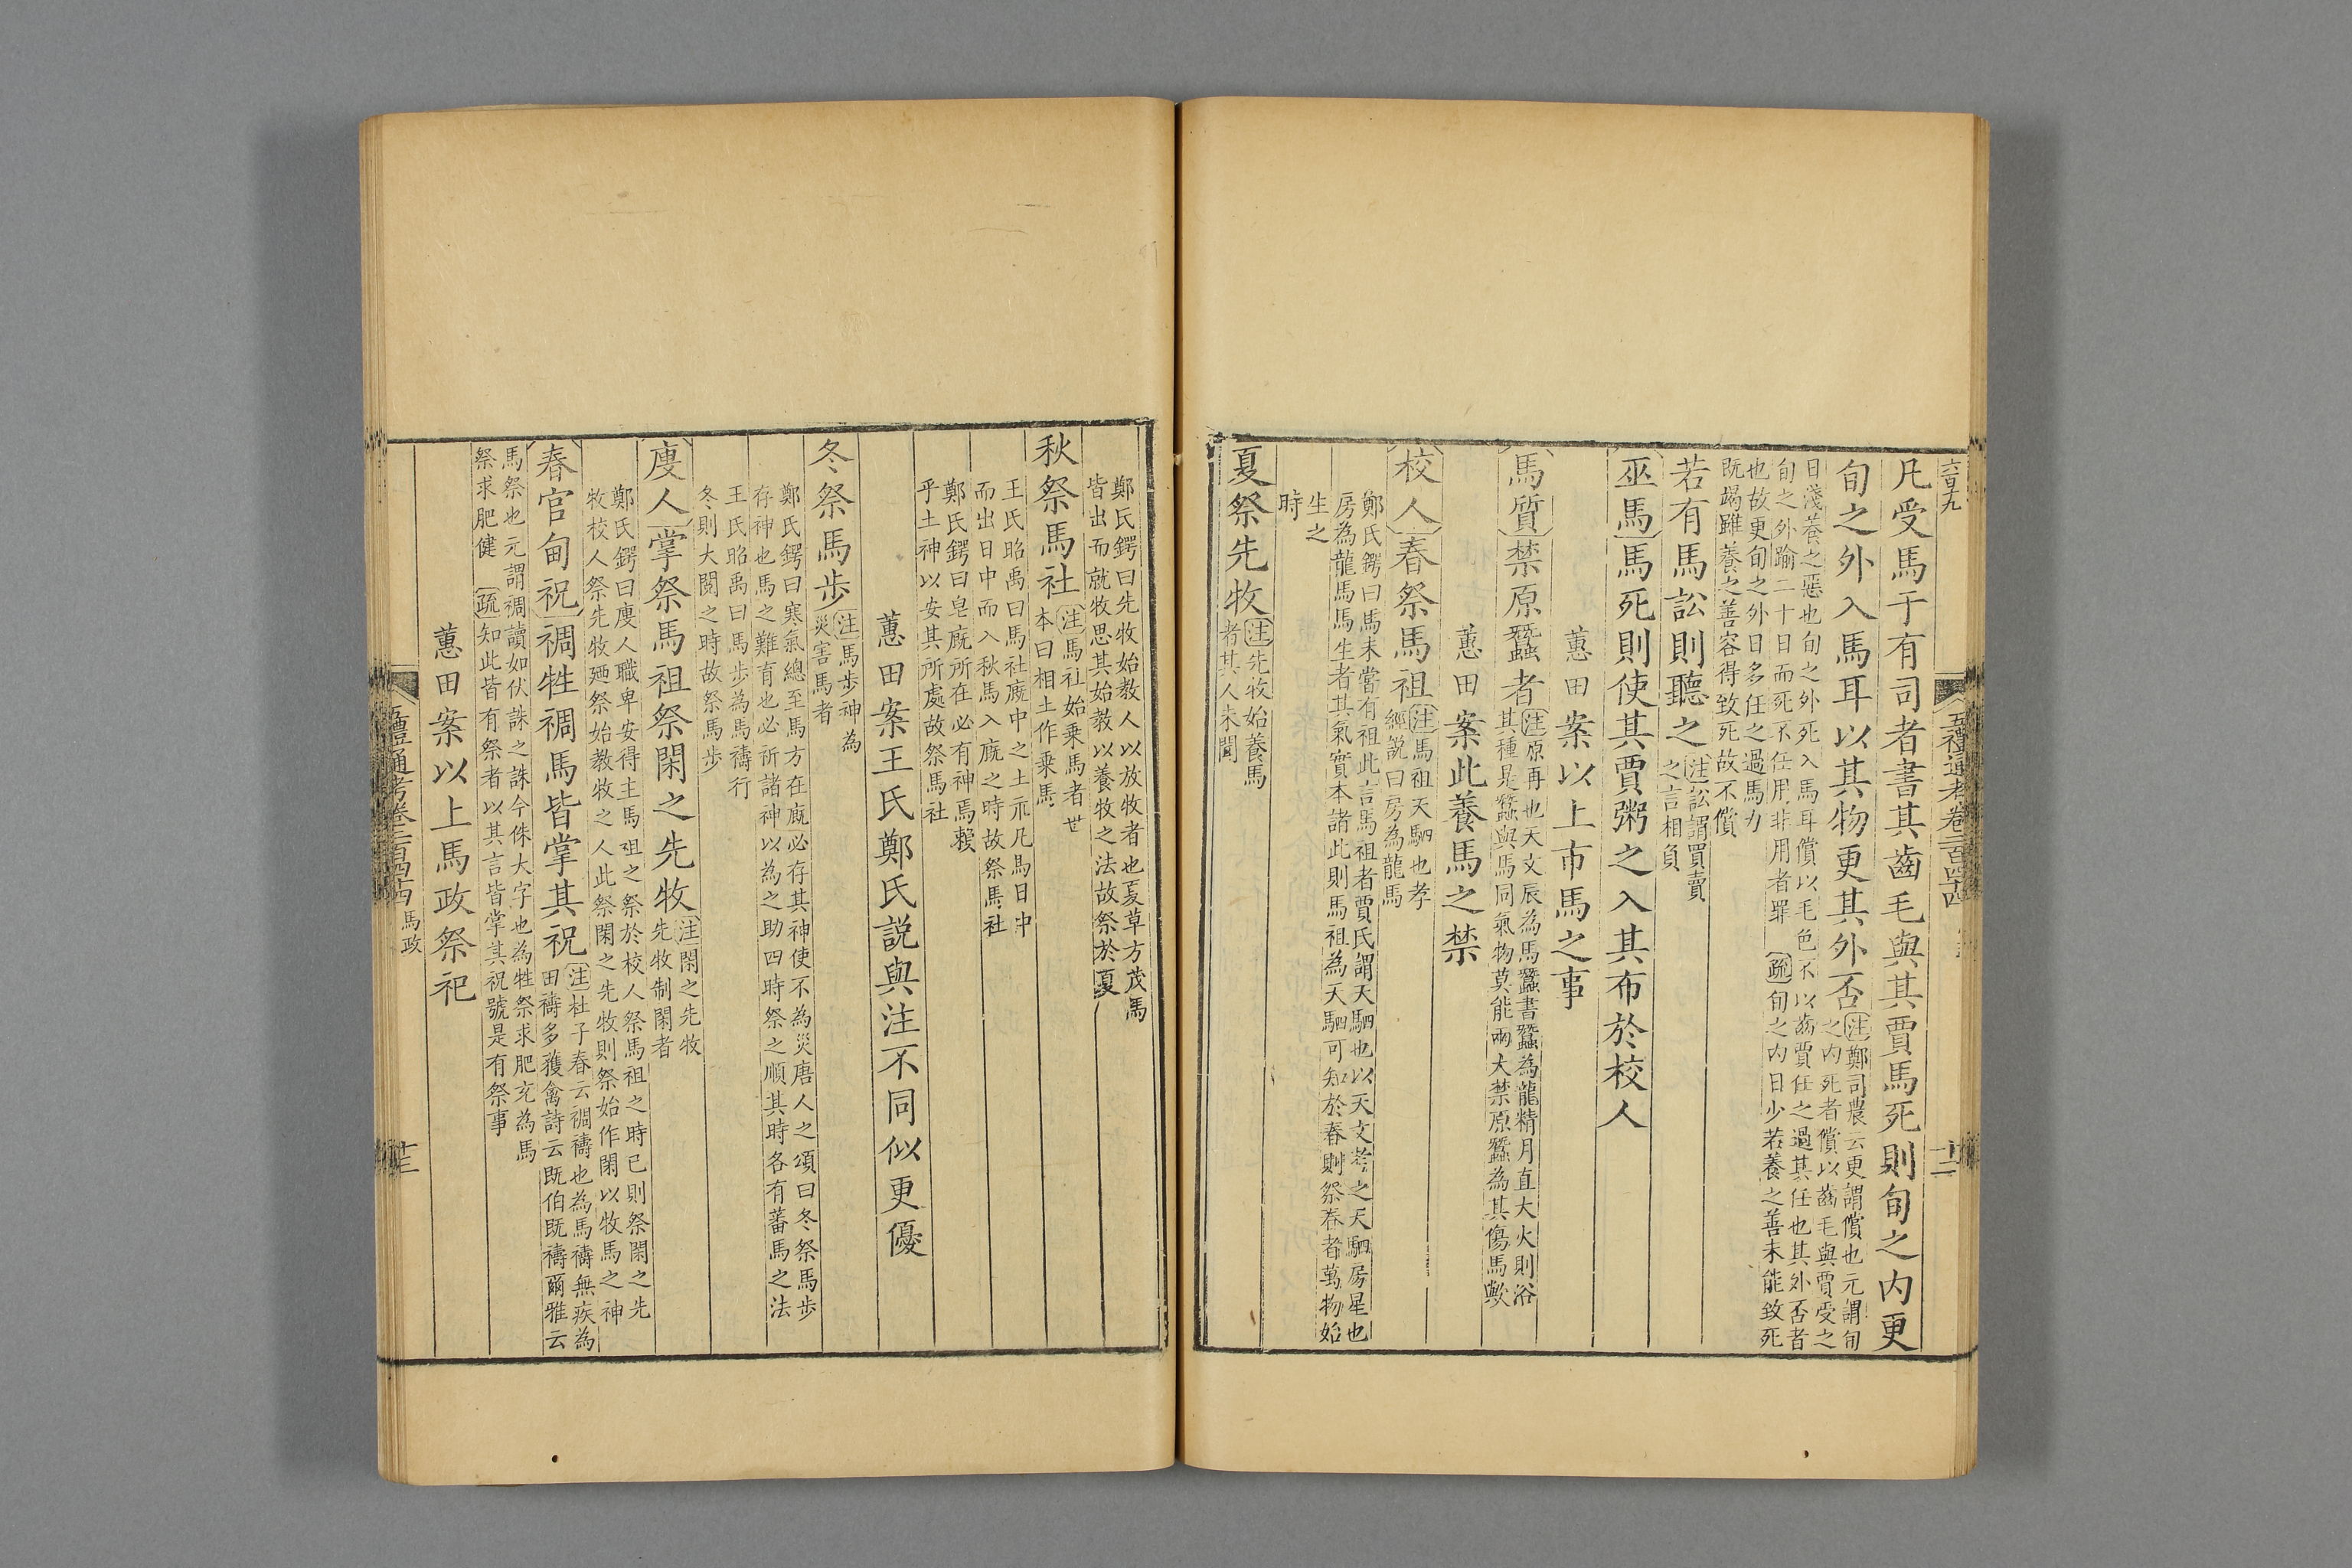 六百九
五禮通考卷二百四十四
十二
凡受馬于有司者書其齒毛與其賈馬死則旬之内更
旬之外入馬耳以其物更其外否
注鄭司農云更謂償也元謂旬
之内死者償以齒毛與賈受之
日淺養之惡也旬之外死入馬耳償以毛色不以齒賈任之過其任也其外否者
旬之外踰二十日而死不任用非用者罪
疏旬之内日少若養之善未能致死
也故更旬之外日多任之過馬力
既竭雖養之善容得致死故不償
若有馬訟則聽之
注訟謂買賣
之言相負
巫馬馬死則使其賈粥之入其布於校人
蕙田案以上市馬之事
馬質禁原蠶者
注原再也天文辰為馬蠶書蠶為龍精月直大火則浴
其種是蠶與馬同氣物莫能兩大禁原蠶為其傷馬歟
蕙田案此養馬之禁
校人春祭馬祖
注馬祖天駟也孝
經説曰房為龍馬
鄭氏鍔曰馬未嘗有祖此言馬祖者賈氏謂天駟也以天文考之天駟房星也
房為龍馬馬生者其氣實本諸此則馬祖為天駟可知於春則祭春者萬物始
生之
時
夏祭先牧
注先牧始養馬
者其人未聞
鄭氏鍔曰先牧始教人以放牧者也夏草方茂馬
皆出而就牧思其始教以養牧之法故祭於夏
秋祭馬社
注馬社始乗馬者世
本曰相土作乗馬
王氏昭禹曰馬社廐中之土示凡馬日中
而出日中而入秋馬入廐之時故祭馬社
鄭氏鍔曰皂廐所在必有神焉賴
乎土神以安其所處故祭馬社
蕙田案王氏鄭氏説與注不同似更優
冬祭馬步
注馬步神為
災害馬者
鄭氏鍔曰寒氣總至馬方在廐必存其神使不為災唐人之頌曰冬祭馬步
存神也馬之難育也必祈諸神以為之助四時祭之順其時各有蕃馬之法
王氏昭禹曰馬步為馬禱行
冬則大閱之時故祭馬步
廋人掌祭馬祖祭閑之先牧
注閑之先牧
先牧制閑者
鄭氏鍔曰廋人職卑安得主馬祖之祭於校人祭馬祖之時已則祭閑之先
牧校人祭先牧廼祭始教牧之人此祭閑之先牧則祭始作閑以牧馬之神
春官甸祝禂牲禂馬皆掌其祝
注杜子春云禂禱也為馬禱無疾為
田禱多獲禽詩云既伯既禱爾雅云
馬祭也元謂禂讀如伏誅之誅今侏大字也為牲祭求肥充為馬
祭求肥健
疏知此皆有祭者以其言皆掌其祝號是有祭事
蕙田案以上馬政祭祀
五禮通考卷二百四十四 馬政
十三